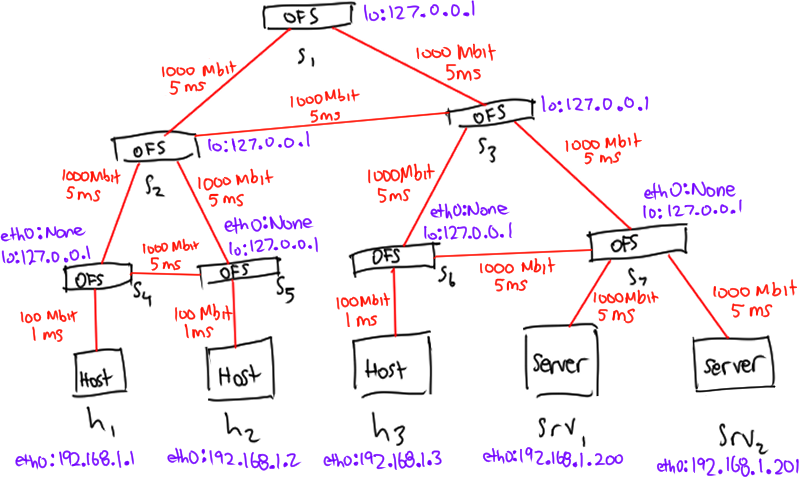 OFS
lo:127.0.0.1
S1
1000 Mbit
5ms
1000 Mbit
5ms
1000Mbit
5ms
OFS
lo:127.0.0.1
S2
OFS
lo:127.0.0.1
S3
1000Mbit
5ms
1000 Mbit
5ms
1000Mbit
5ms
1000 Mbit
5ms
eth0:None
lo:127.0.0.1
OFS
S4
1000 Mbit
5ms
eth0:None
lo:127.0.0.1
OFS
S5
eth0:None
lo:127.0.0.1
OFS
S6
1000 Mbit
5ms
eth0:None
lo:127.0.0.1
OFS
S7
100 Mbit
1 ms
100 Mbit
1ms
100Mbit
1 ms
1000Mbit
5ms
1000 Mbit
5 ms
Host
h1
eth0:192.168.1.1
Host
h2
eth0:192.168.1.2
Host
h3
eth0:192.168.1.3
Server
Srv1
eth0:192.168.1.200
Server
Srv2
eth0:192.168.1.201